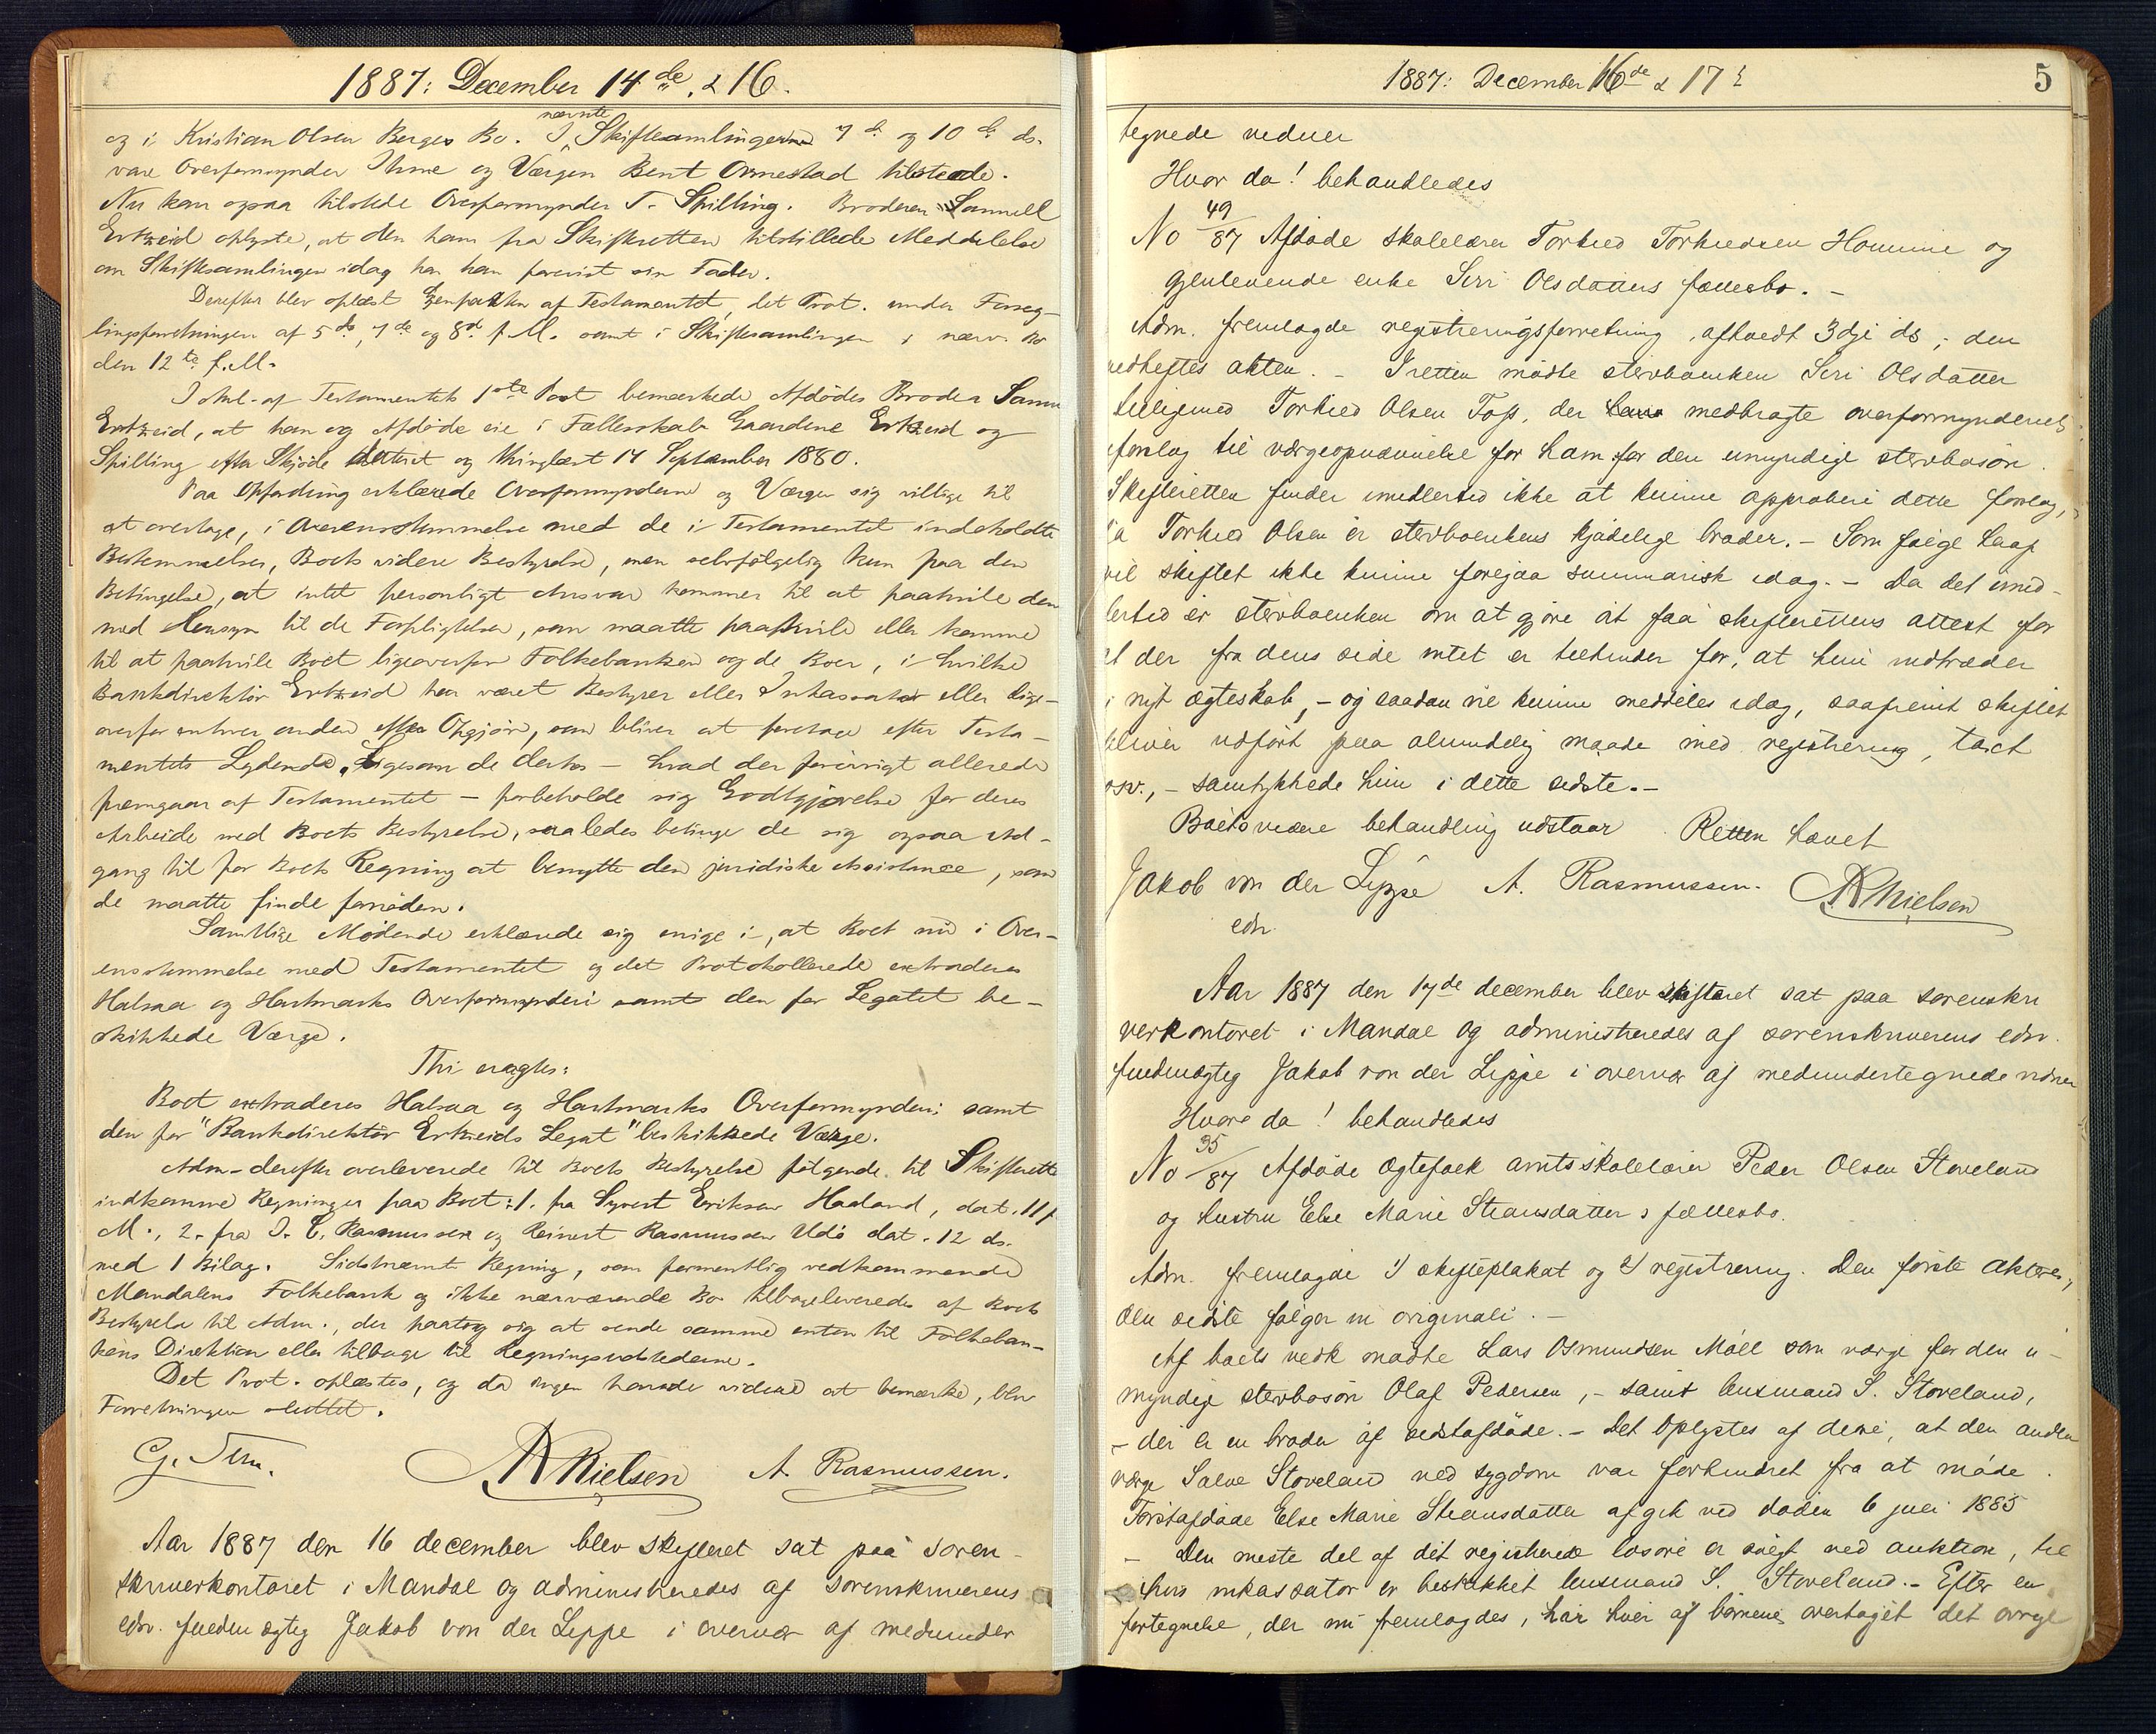 1887: December 14 de. & 16.
og i Kristian Olsen Berges Bo. I nævnte Skiftesamlinger 7 de og 10 de ds.
vare Overformynder Ihme og Værgen Bent Ormestad tilstede.
Nu kom ogsaa tilstede Overformynder T. Spilling. Broderen Samuell
Ertzeid oplyste, at den ham fra Skifteretten tilstillede Meddelelse
om Skiftesamlingen idag har han forevist sin Fader.
Derefter blev oplæst Gjenparten af Testamentet, det Prot. under Forseg-
lingsforretningen af 5 de, 7 de og 8 de f. M. samt i Skiftesamlingen i nærv. Bo
den 12 te f. M.
I Anl. af Testamentets 1 ste Post bemærkede Afdødes Broder Samu
Ertzeid, at han og Afdøde eie i Fællesskab Gaardene Ertzeid og
Spilling efter Skjøde dateret og thinglæst 17 September 1880.
Paa Opfordring erklærede Overformynderne og Værgen sig villige til
at overtage, i Overensstemmelse med de i Testamentet indeholdte
Bestemmelser, Boets videre Bestyrelse, men selvfølgelig kun paa den
Betingelse, at intet personligt Ansvar kommer til at paahvile dem
med Hensyn til de Forpligtelser, som maatte paahvile eller komme
til at paahvile Boet ligeoverfor Folkebanken og de Boer, i hvilke
Bankdirektør Ertzeid har været Bestyrer eller Inkassator eller lige-
overfor enhver anden efter Opgjør, som bliver at foretage efter Testa-
mentets Lydende. Ligesom de derhos - hvad der forøvrigt allerede
fremgaar af Testamentet - forbeholde sig Godtgjørelse for deres
Arbeide med Boets Bestyrelse, saaledes betinge de sig ogsaa Ad-
gang til for Boets Regning at benytte den juridiske Assistance, som
de maatte finde fornøden.
Samtlige Mødende erklærede sig enige i, at Boet nu i Over-
ensstemmelse med Testamentet og det Protokollerede extraderes
Halsaa og Hartmarks Overformynderi samt den for Legatet be-
skikkede Værge.
Thi eragtes:
Boet extraderes Halsaa og Hartmarks Overformynderi samt
den for "Bankdirektør Ertzeids Legat" beskikkede Værge.
Adm. derefter overleverede til Boets Bestyrelse følgende til Skifterette
indkomne Regninger paa Boet: 1. fra Syvert Eriksen Haaland, dat. 11 f
M., 2. fra J. C. Rasmussen og Reinert Rasmussen Udø dat. 12 ds.
med 1 Bilag. Sidstnævnte Regning, som formentlig vedkommende
Mandalens Folkebank og ikke nærværende Bo tilbageleveredes af Boets
Bestyrelse til Adm., der paatog sig at sende samme enten til Folkeban-
kens Direktion eller tilbage til Regningsudstederne.
Det Prot. oplæstes, og da ingen havde videre at bemærke, blev
Forretningen sluttet.
A Nielsen A. Rasmussen.
Aar 1887 den 16 december blev skifteret sat paa soren-
skriverkontoret i Mandal og administreredes af sorenskriverens
edsv. fuldmægtig Jakob von der Lippe i overvær af medunder
1887: December 16 de & 17
5
tegnede vidner
Hvor da! behandledes
No 49/87 Afdøde skolelærer Torkied Torkiedsen Homme og
gjenlevende enke Siri Olsdatters fællesbo. -
Adm. fremlagde registreringsforretning, afholdt 3dje ds; den
vedheftes akten. - I retten mødte stervboenken Siri Olsdatter
tilligemed Torkied Olsen Foss, der medbragte overformynderiets
forslag til værgeopnævnelse for ham for den umyndige stervbosøn.
Skifteretten finder imidlertid ikke at kunne approbere dette forslag,
da Torkied Olsen er stervboenkens kjødelige broder. - Som følge heraf
vil skiftet ikke kunne foregaa summarisk idag. - Da det imid-
lertid er stervboenken om at gjøre at faa skifterettens attest for
at der fra dens side intet er tilhinder for, at hun indtræder
i nyt ægteskab, - og saadan vil kunne meddeles idag, saafremt skiftet
bliver udført paa almindelig maade med registrering, taxt
osv., - samtykkede hun i dette sidste. -
Boets videre behandling udstaar. Retten hævet
Jakob von der Lippe A. Rasmussen. A Nielsen
edsv.
Aar 1887 den 17de december blev skifteret sat paa sorenskri
verkontoret i Mandal og administreredes af sorenskriverens edsv.
fuldmægtig Jakob von der Lippe i overvær af medundertegnede vidner
Hvor da! behandledes
No 35/87 Afdøde ægtefolk amtsskolelærer Peder Olsen Stoveland
og hustru Else Marie Steansdatters fællesbo.
Adm. fremlagde 1) skifteplakat og 2) registrering. Den første akteres,
den sidste følger in originali. -
Af boets vedk mødte Lars Osmundsen Møll som værge for den u-
myndige stervbosøn Olaf Pedersen, - samt lensmand S. Stoveland,
- der er en broder af sidstafdøde. - Det oplystes af disse, at den anden
værge Salve Stoveland ved sygdom var forhindret fra at møde.
Førstafdøde Else Marie Steansdatter afgik ved døden 6 juli 1885
- Den meste del af det registrerede løsøre er solgt ved auktion, til
hvis inkassator er beskikket lensmand S. Stoveland. - Efter en
fortegnelse, der nu fremlagdes, har hver af børnene overtaget det øvrige